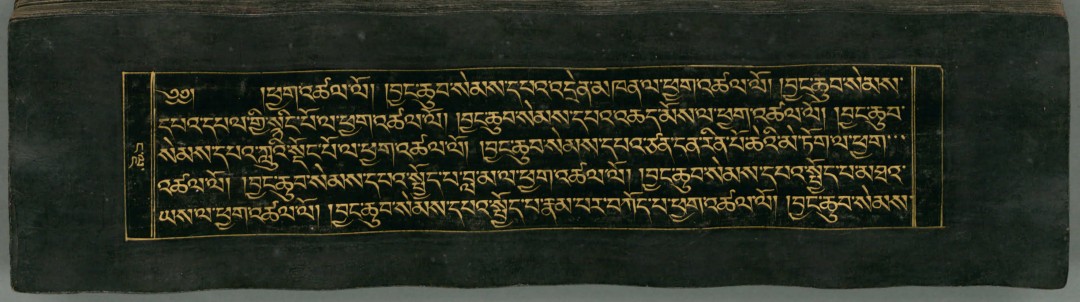 ༄༅། །ཕྱག་འཚལ་ལོ། །བྱང་ཆུབ་སེམས་དཔའ་འདྲེན་མཁན་ལ་ཕྱག་འཚལ་ལོ། །བྱང་ཆུབ་སེམས་
དཔའ་དཔལ་གྱི་སྙིང་པོ་ལ་ཕྱག་འཚལ་ལོ། །བྱང་ཆུབ་སེམས་དཔའ་འཆད་མོས་ལ་ཕྱག་འཚལ་ལོ། །བྱང་ཆུབ་
སེམས་དཔའ་ཀླུའི་སྙིང་པོ་ལ་ཕྱག་འཚལ་ལོ། །བྱང་ཆུབ་སེམས་དཔའ་ཙན་དན་རིན་པོ་ཆེའི་མེ་ཏོག་ལ་ཕྱག་
འཚལ་ལོ། །བྱང་ཆུབ་སེམས་དཔའ་སྤྱོད་པ་བླ་མ་ལ་ཕྱག་འཚལ་ལོ། །བྱང་ཆུབ་སེམས་དཔའ་སྤྱོད་པ་མཐའ་
ཡས་ལ་ཕྱག་འཚལ་ལོ། །བྱང་ཆུབ་སེམས་དཔའ་སྤྱོད་པ་རྣམ་པར་བཀོད་པ་ཕྱག་འཚལ་ལོ། །བྱང་ཆུབ་སེམས་